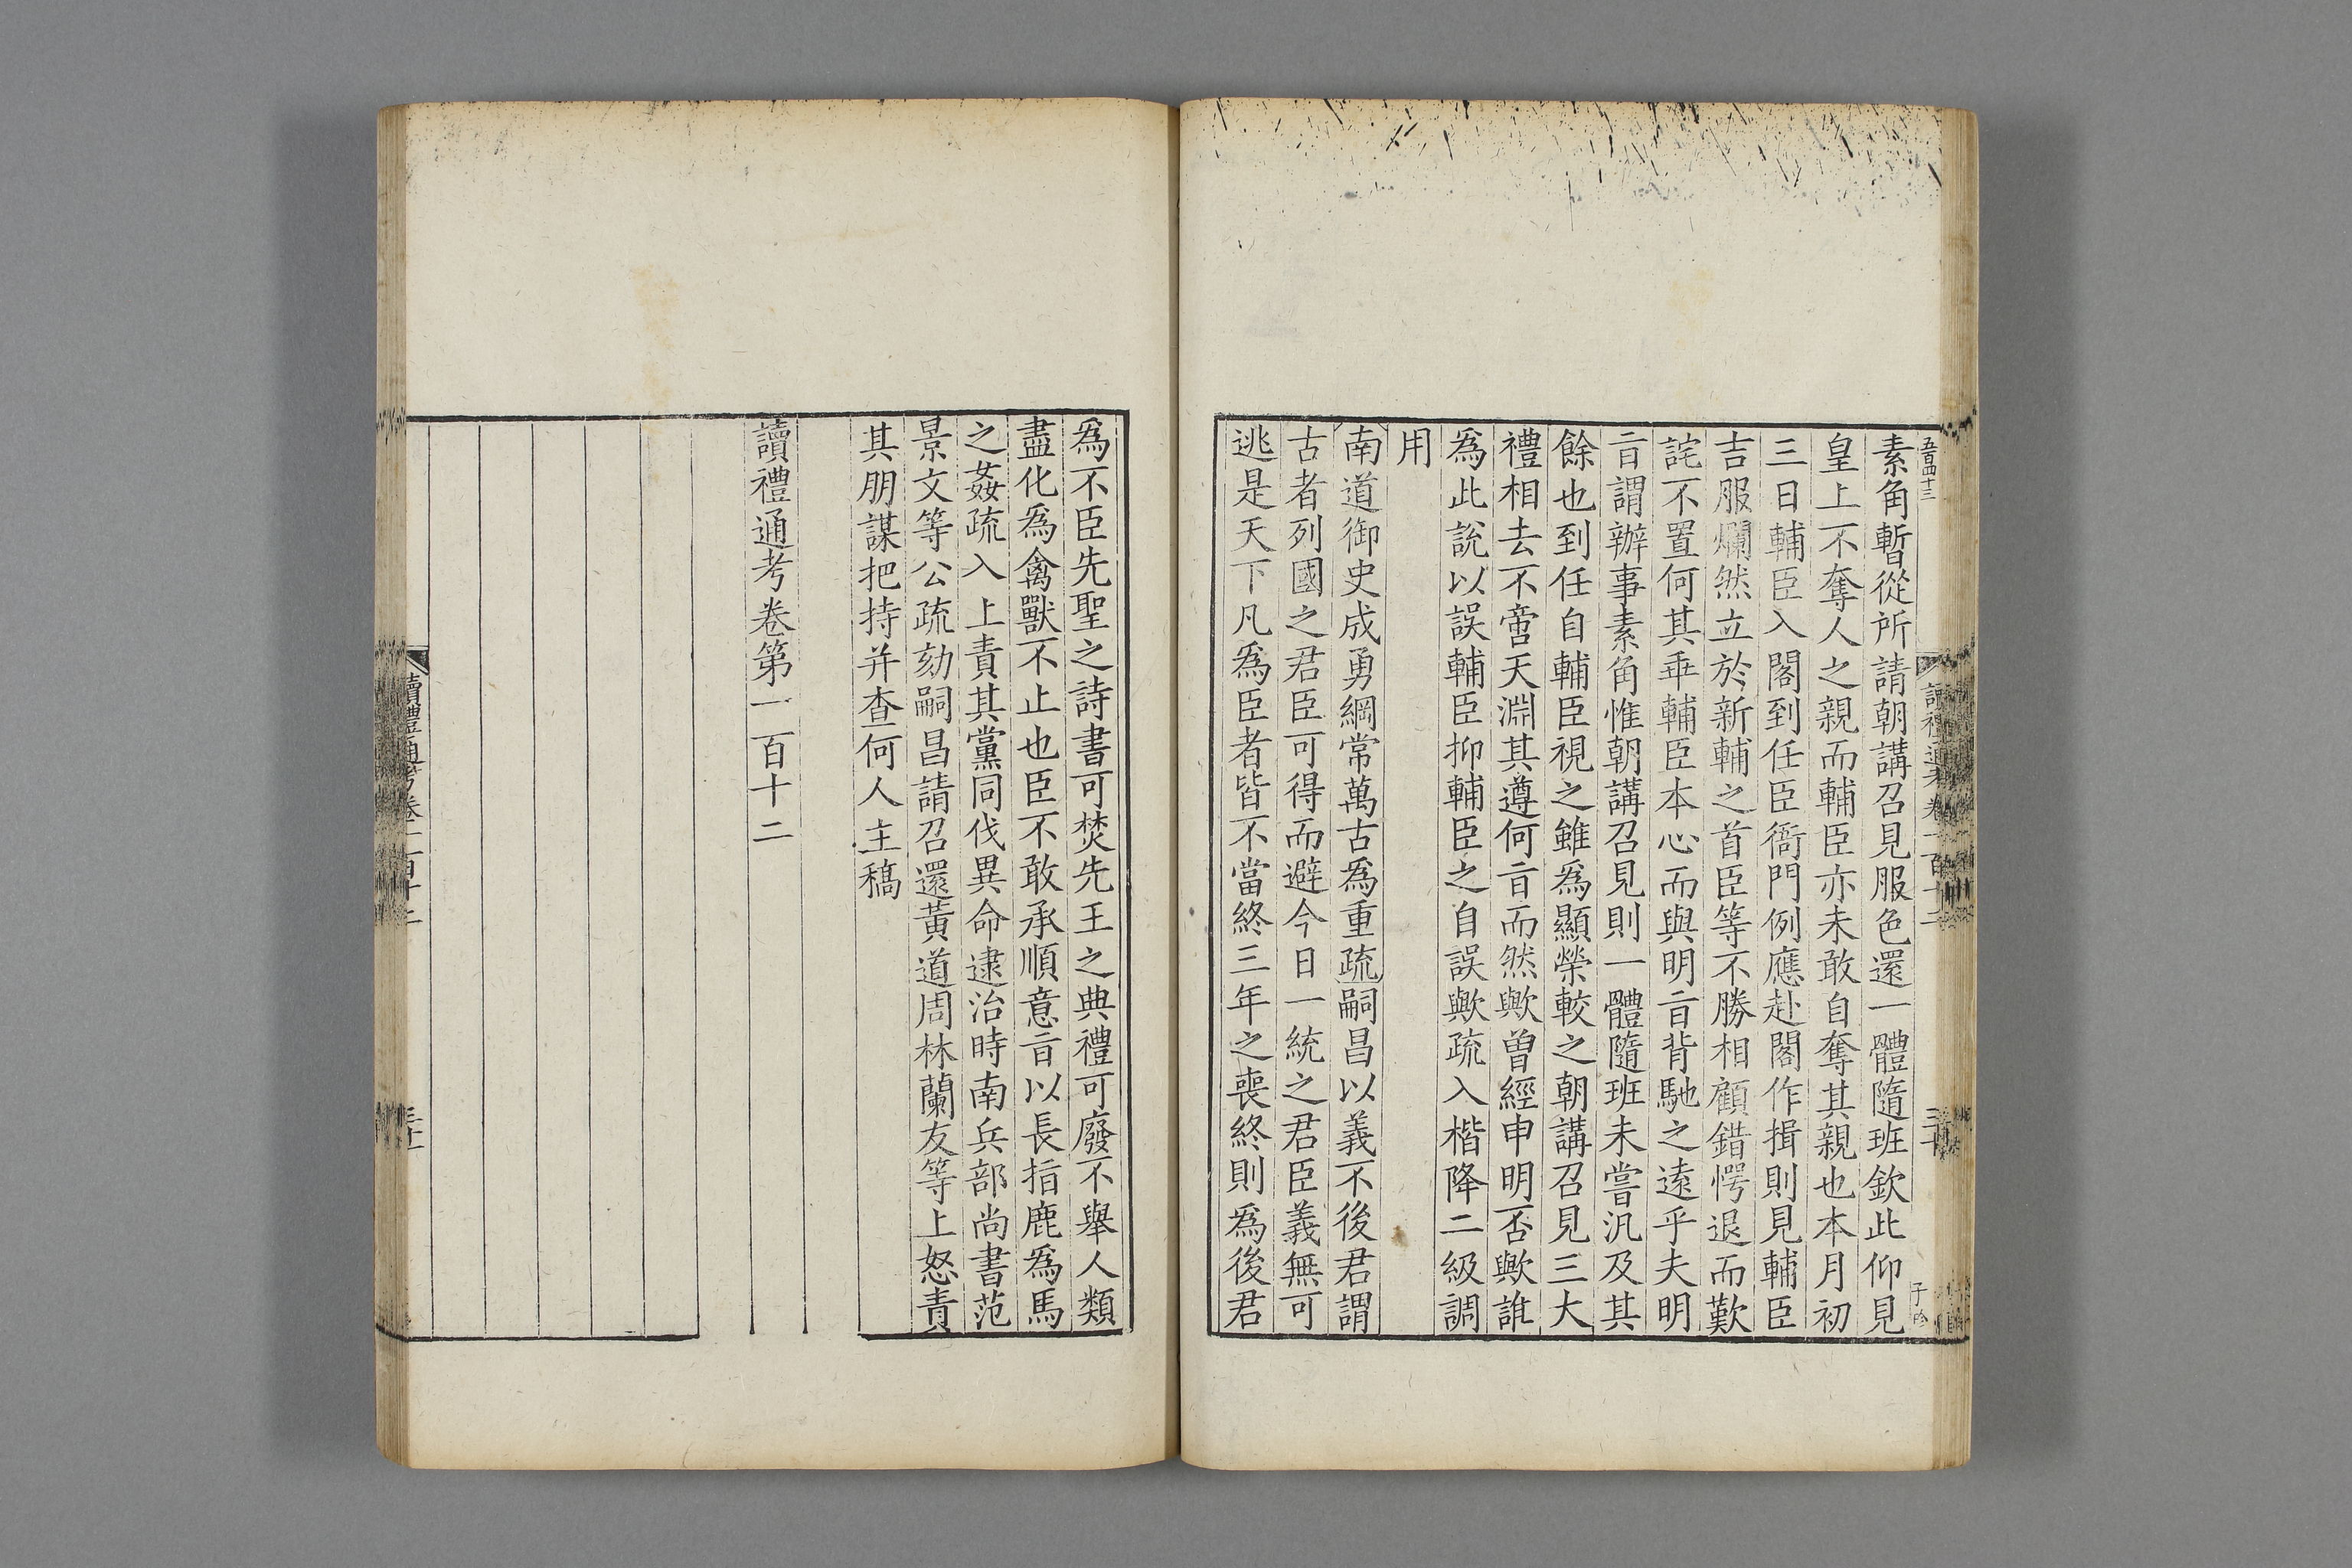 五百四十三
素角暫從所請朝講召見服色還一體隨班欽此仰見
皇上不奪人之親而輔臣亦未敢自奪其親也本月初
三日輔臣入閣到任臣衙門例應赴閣作揖則見輔臣
吉服爛然立於新輔之首臣等不勝相顧錯愕退而歎
詫不置何其乖輔臣本心而與明㫖背馳之遠乎夫明
㫖謂辦事素角惟朝講召見則一體隨班未嘗汎及其
餘也到任自輔臣視之雖爲顯榮較之朝講召見三大
禮相去不啻天淵其遵何㫖而然歟曾經申明否歟誰
爲此說以誤輔臣抑輔臣之自誤歟疏入楷降二級調
用
南道御史成勇綱常萬古爲重疏嗣昌以義不後君謂
古者列國之君臣可得而避今日一統之君臣義無可
逃是天下凡爲臣者皆不當終三年之喪終則爲後君
爲不臣先聖之詩書可焚先王之典禮可廢不舉人類
盡化爲禽獸不止也臣不敢承順意㫖以長指鹿爲馬
之姦疏入上責其黨同伐異命逮治時南兵部尚書范
景文等公疏劾嗣昌請召還黃道周林蘭友等上怒責
其朋謀把持并查何人主稿
讀禮通考卷第一百十二
讀禮通考卷一百十二